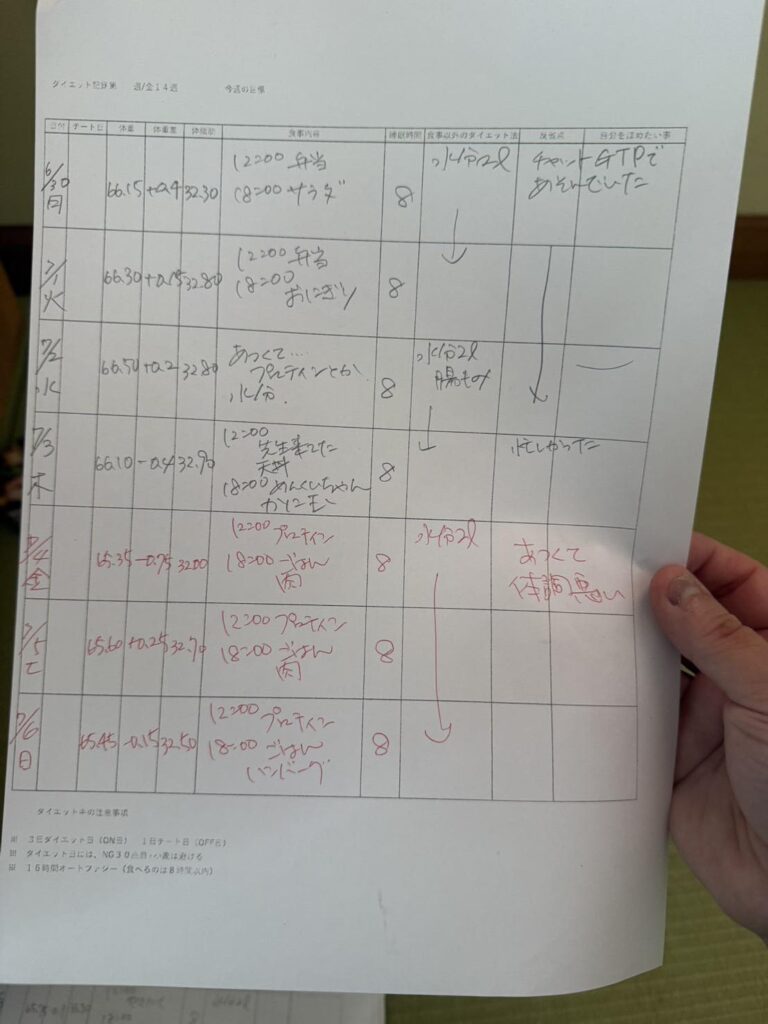 ダイエット記録集 週/全14週 今週の目標
日付 チート日 体重 体重差 体脂肪 食事内容 睡眠時間 食事以外のダイエット法 反省点 自分を褒めたい事
6/30 66.15 +0.4 32.30 12:00 弁当 8 水分2l チャットGTPで
18:00 サラダ あそんでいた
7/1 火 66.30 +0.15 32.80 12:00 弁当 8
18:00
おにぎり
7/2 水 66.50 +0.2 32.80 あつくて…. 8 水分2l
プロティンとか 腸もみ
水分.
7/3 木 66.10 -0.4 32.90 12:00 8 忙しかった
先生来てた
天丼
18:00 めんくいちゃん
かに玉
7/4 金 65.35 -0.75 32.00 12:00 プロティン 8 水分2l あつくて
18:00 ごはん 体調悪い
肉
7/5 土 65.60 +0.25 32.70 12:00 プロティン 8
18:00 ごはん
肉
7/6 日 65.45 -0.15 32.50 12:00 プロティン 8
18:00 ごはん
ハンバーグ
ダイエット中の注意事項
※ 3日ダイエット日(ON日) 1日チート日(OFF日)
※ ダイエット日には、NG30品目・小麦は避ける
※ 16時間オートファジー(食べるのは8時間以内)